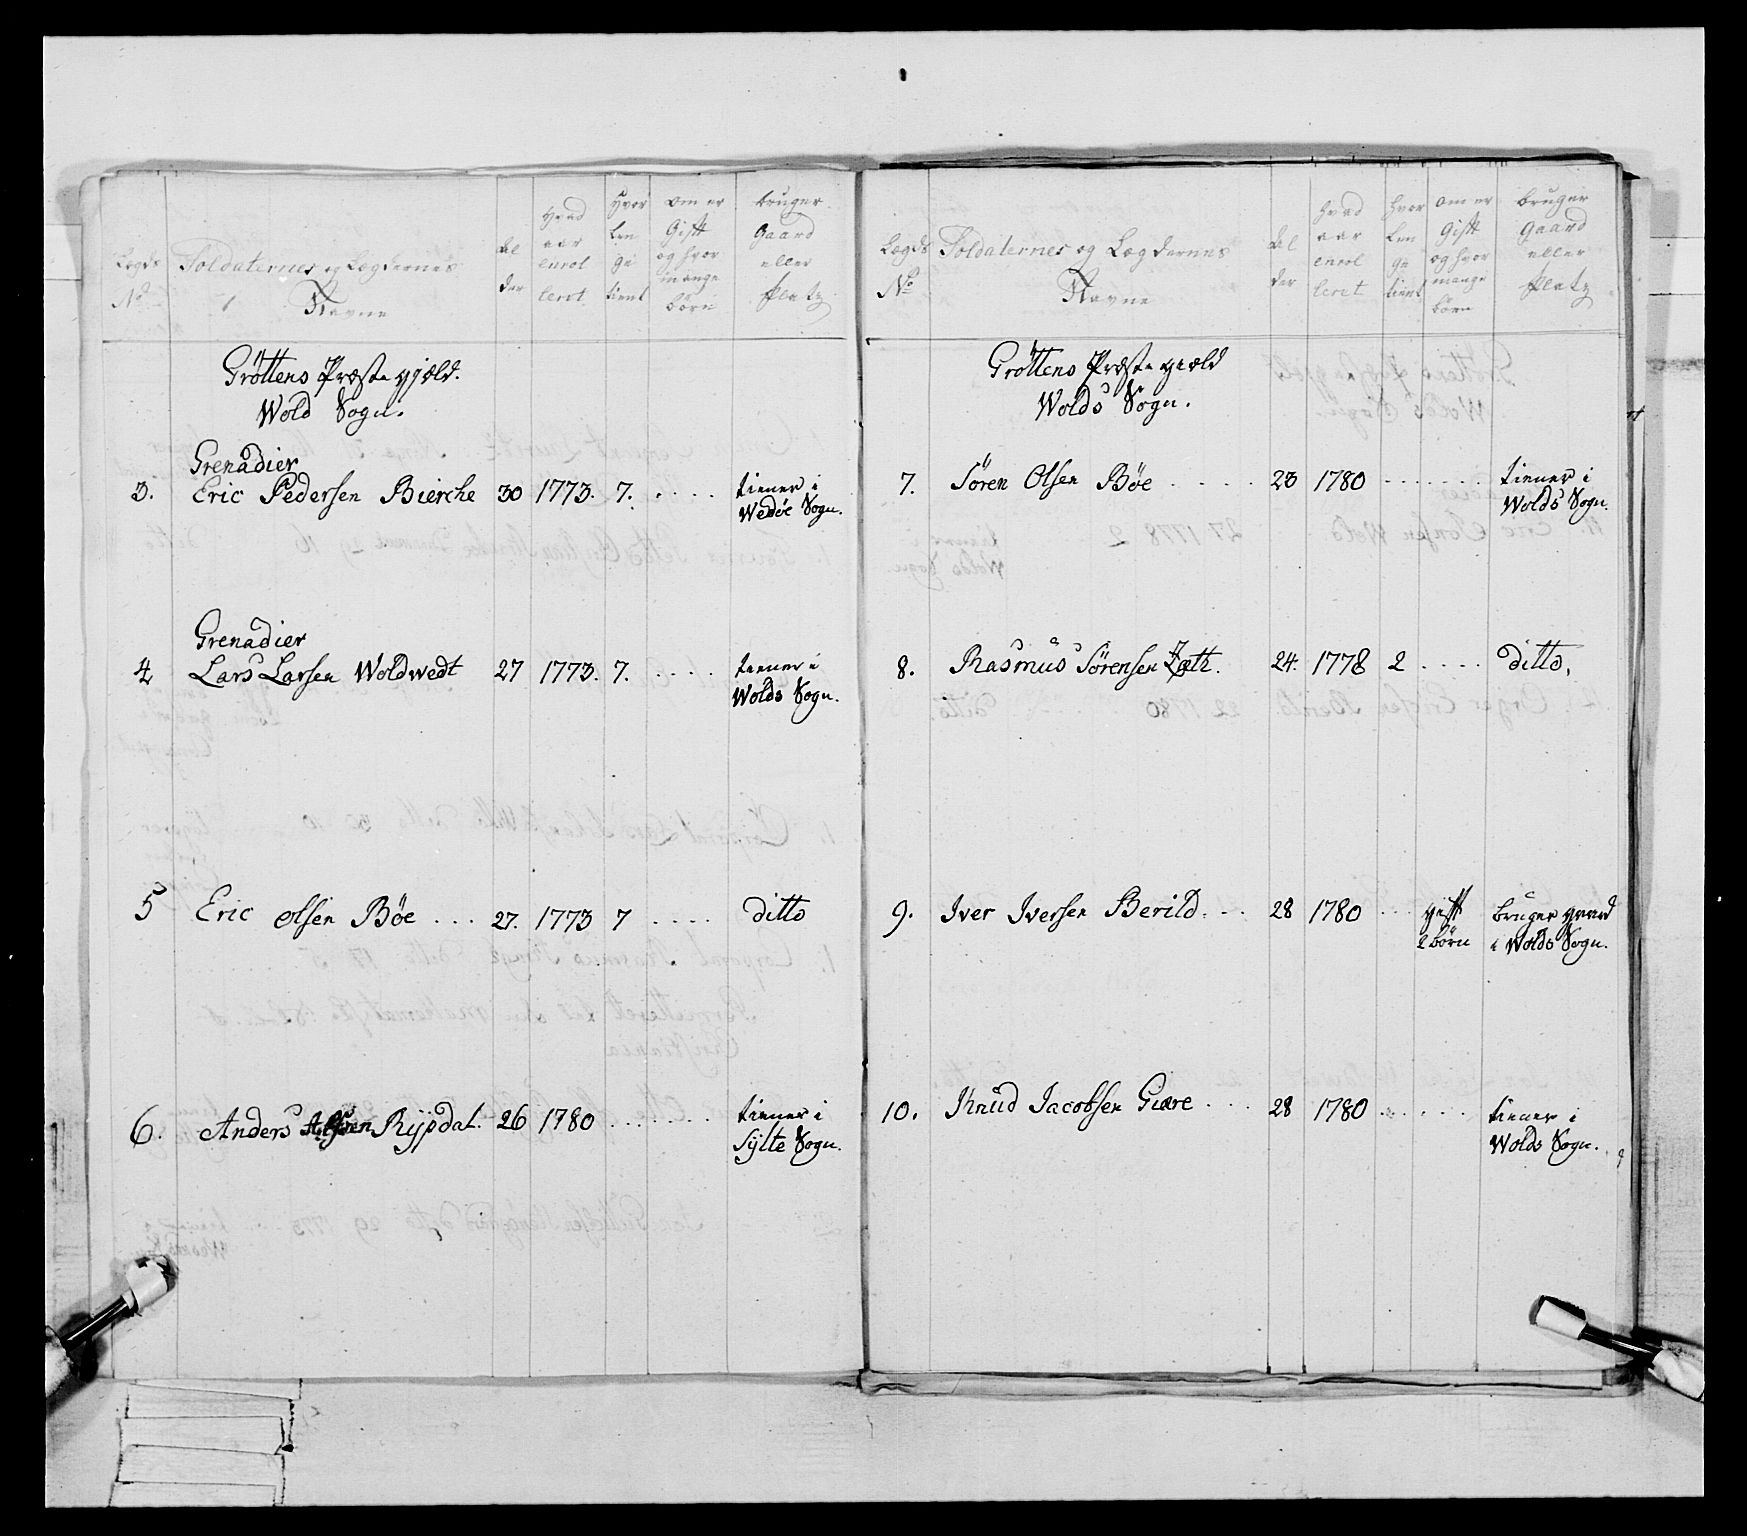 Lægds No Soldaternes og Lægdernes Navne al der hvad aar enrol leret hvor len ge tient om er Gift og hvor mange börn bruger Gaard eller Platz
Gröttens Præste gjæld.
Wold Sogn.
Grenadier
3. Eric Pedersen Bierche 30 1773. 7. . . . . tiener i
Wedøe Sogn.
Grenadier
4 Lars Larsen Woldwedt 27 1773. 7. . . . . tiener i
Wolds Sogn.
5 Eric Olsen Bøe . . . 27. 1773 7 . . . . ditto
6. Anders Rÿpdal. 26 1780 . . . . . . . tiener i
Sÿlte Sogn.
Lægds No Soldaternes og Lægdernes Navne al der hvad aar enrol leret hvor len ge tient om er Gift og hvor mange börn bruger Gaard eller Platz
Gröttens Præste giæld
Wolds Sogn.
7. Sören Olsen Bøe . . . . . 23 1780 . . . . . . . tiener i
Wolds Sogn.
8. Rasmus Sörensen 24. 1778 2 . . . . ditto,
9. Iver Iversen Berild. . . 28 1780 . . . gift bruger gaard
2 börn i Wolds Sogn.
10. Knud Jacobsen Giære . . . 28 1780 . . . . . tiener i
Wolds Sogn.